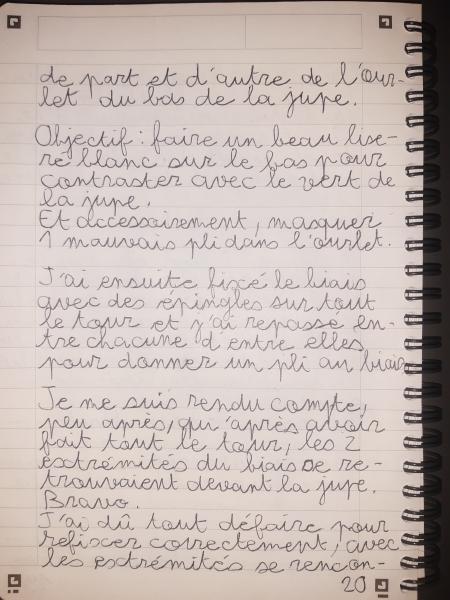 de part et d'autre de l'our-
let du bas de la jupe.
Objectif : faire un beau lise-
ré blanc sur le bas pour
contraster avec le vert de
la jupe.
Et accessoirement, masquer
1 mauvais pli dans l'ourlet.
J'ai ensuite fixé le biais
avec des épingles sur tout
le tour et j'ai repassé en-
tre chacune d'entre elles
pour donner un pli au biais.
Je me suis rendu compte,
peu après, qu'après avoir
fait tout le tour, les 2
extrémités du biais se re-
trouvaient devant la jupe.
Bravo.
J'ai dû tout défaire pour
refixer correctement, avec
les extrémités se rencon-
20